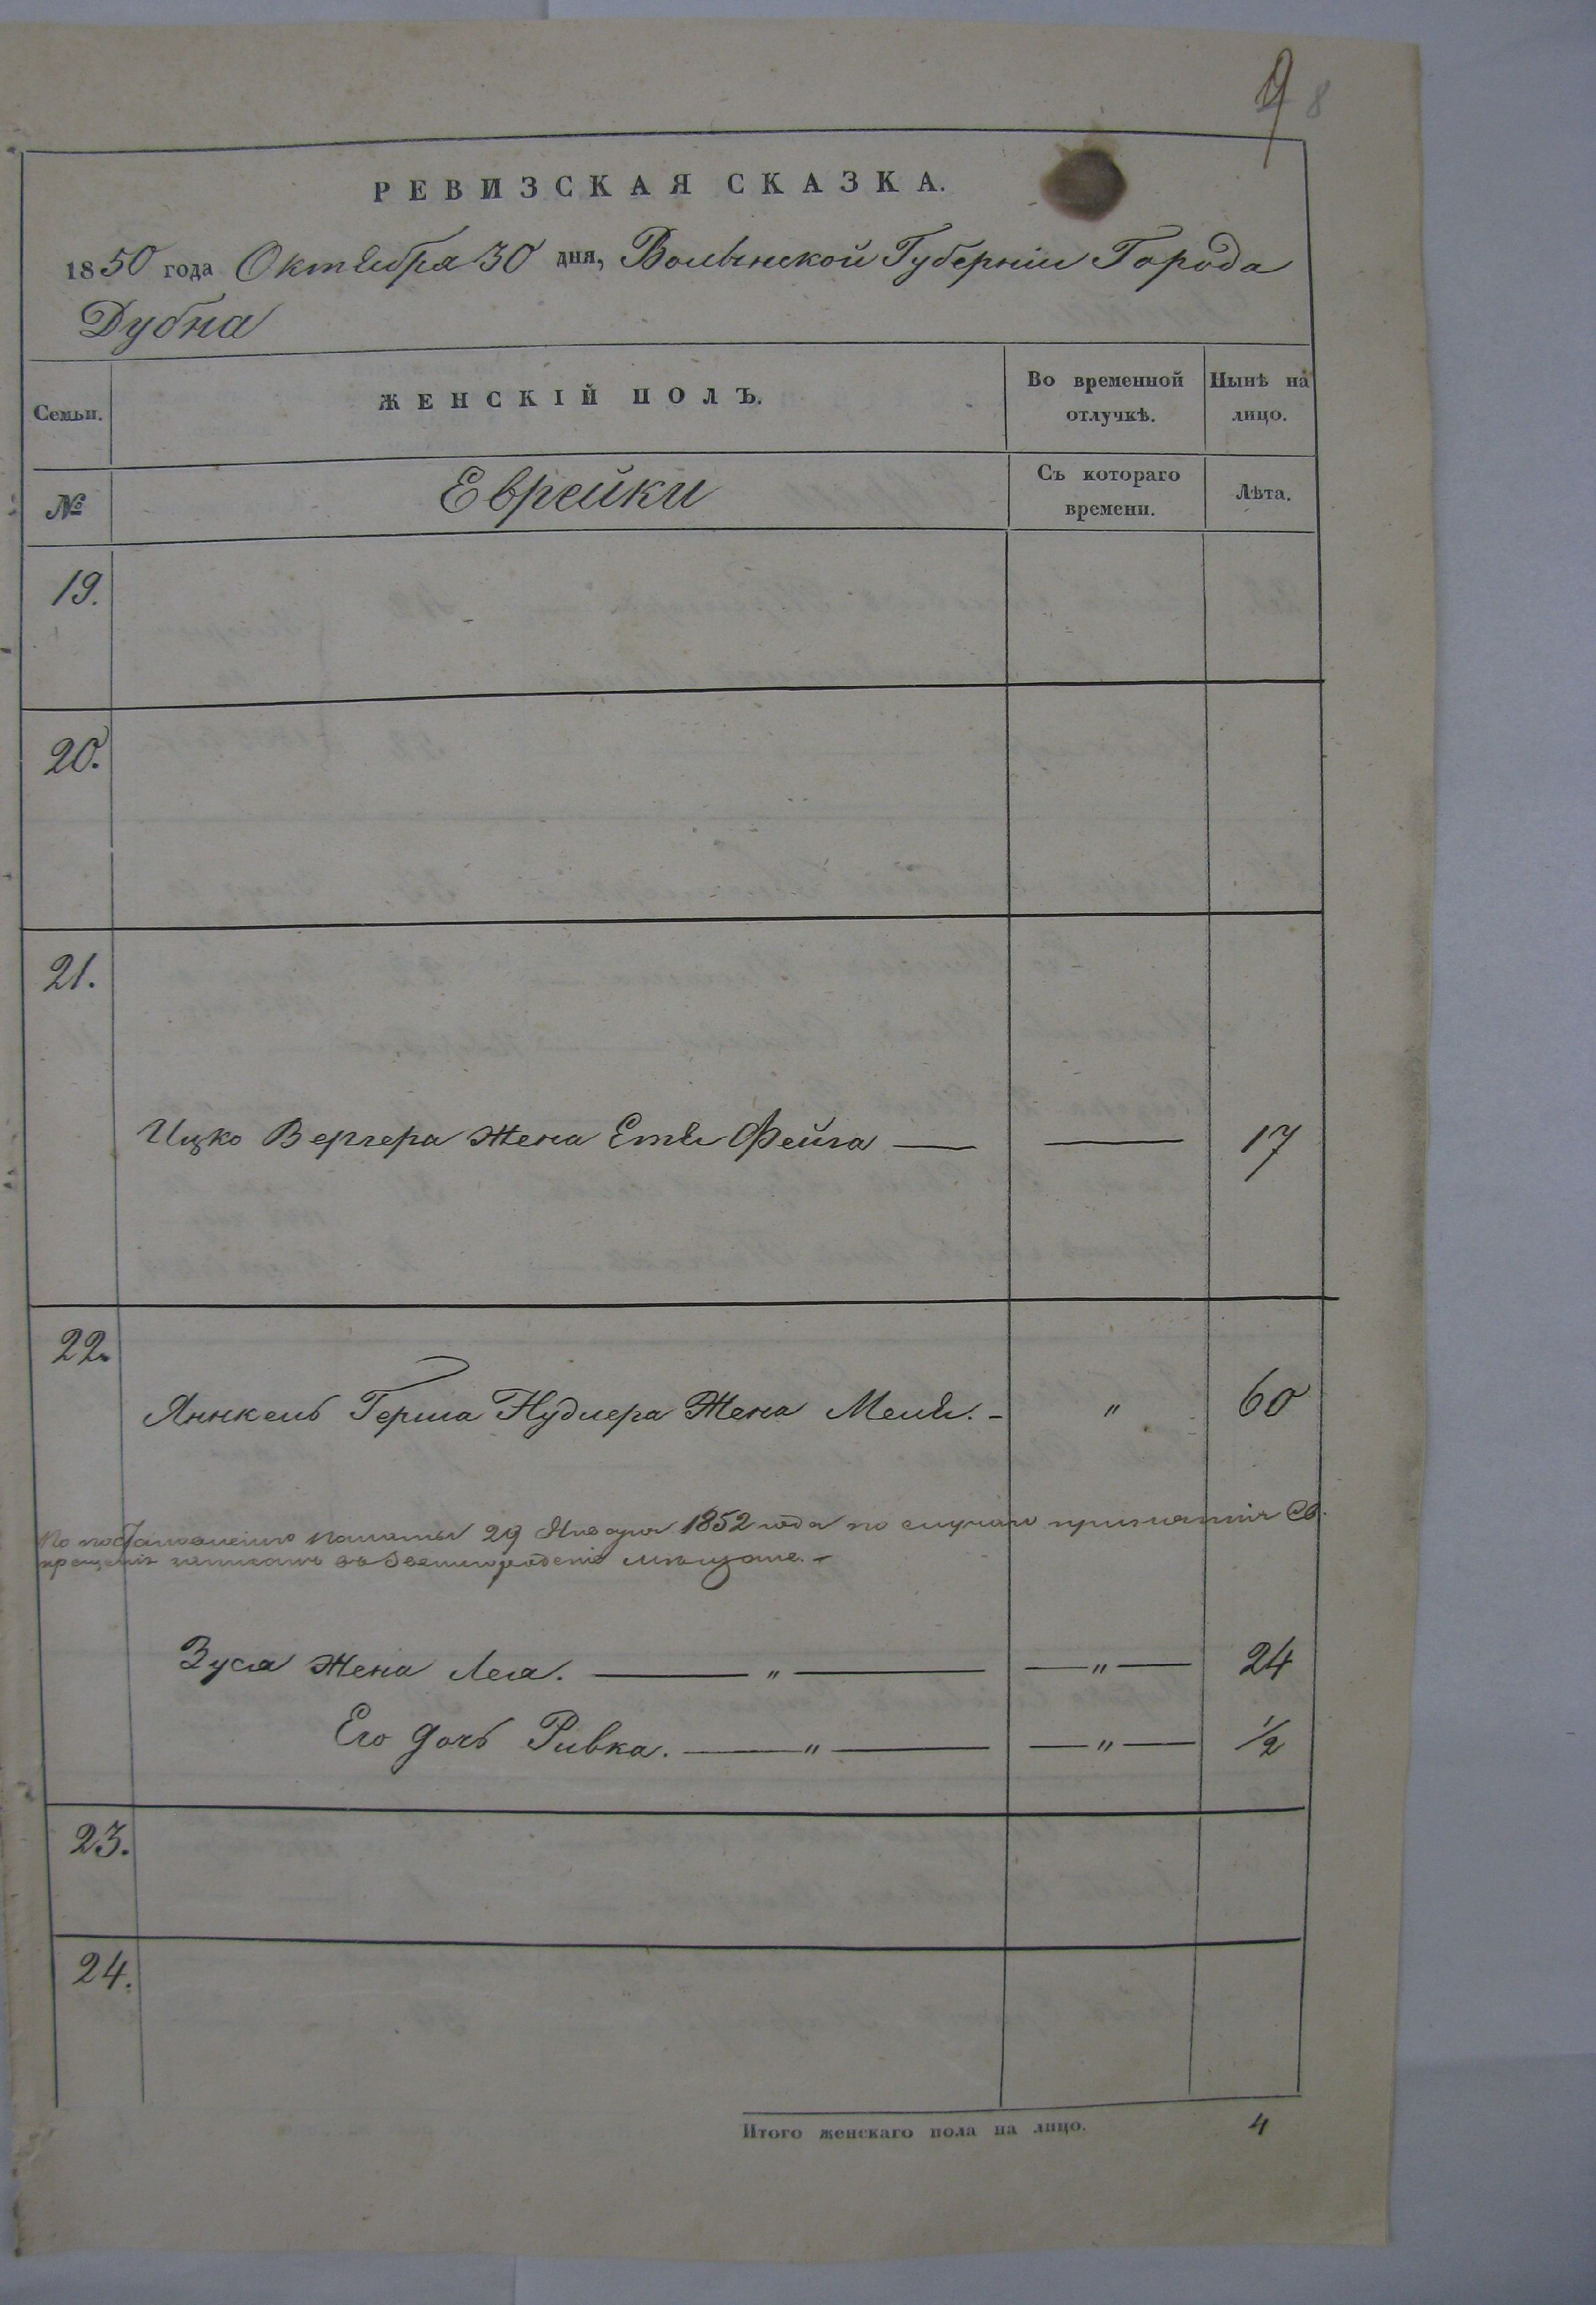 9 8
РЕВИЗСКАЯ СКАЗКА.
1850 года Октября 30 дня, Волынской Губерніи Города
Дубна
Семьи.
ЖЕНСКІЙ ПОЛЪ.
Во временной отлучкѣ.
Нынѣ на лицо.
№
Еврейки
Съ котораго времени.
Лѣта.
19.
20.
21.
Ицко Вергера Жена Етя Фейга — — 17
22.
Янкель Герша Нудлера Жена Меля. - " 60
По постановленію палаты 29 Января 1852 года по случаю принятія Св.
крещенія записанъ въ мѣщане. -
Зуся Жена Лея. — " — — " — 24
Его дочь Ривка. — " — — " — 1/2
23.
24.
Итого женскаго пола на лицо. 4